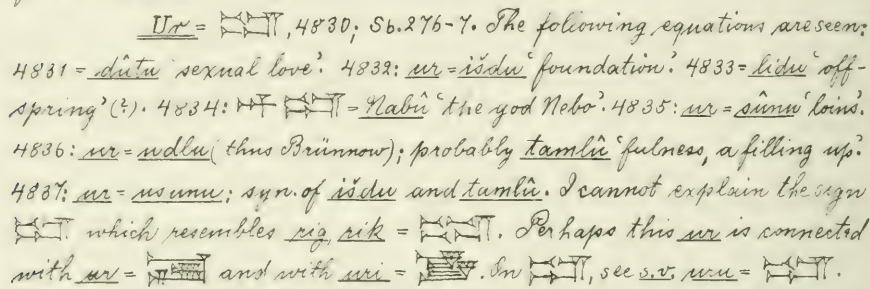 Ur = , 4830; Sb. 276-7. The following equations are seen:
4831 = dûtu ‘sexual love’. 4832: ur = išdu ‘foundation’. 4833 = lidu ‘off-
spring’ (?). 4834: = Nabû ‘the god Nebo’. 4835: ur = sûnu ‘loins’.
4836: ur = udlu (thus Brünnow); probably tamlû ‘fulness, a filling up’.
4837: ur = usunu; syn. of išdu and tamlû. I cannot explain the sign
which resembles rig, rik = . Perhaps this ur is connected
with ur = and with uri = . In , see s.v. uru = .